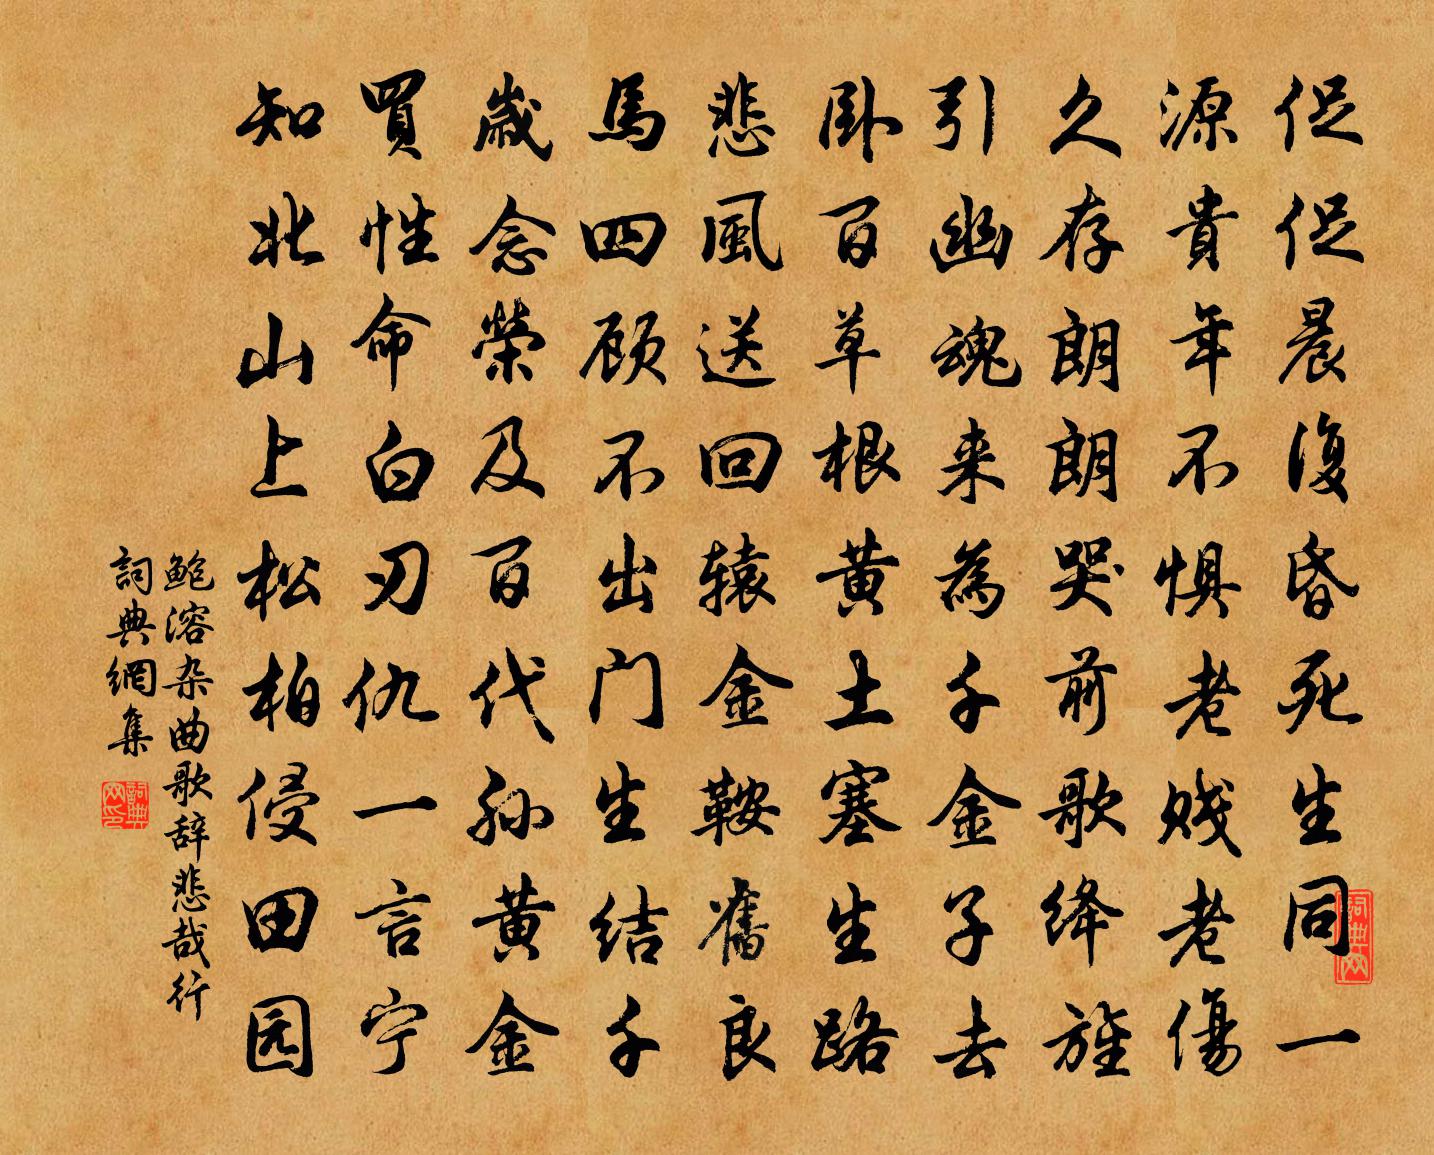 促促晨復昏死生同一
源貴年不惧老贱老傷
久存朗朗哭前歌绛旌
引幽魂来為千金子去
卧百草根黄土塞生路
悲風送回辕金鞍舊良
馬四顾不出门生结千
歲念榮及百代孙黄金
買性命白刃仇一言宁
知北山上松柏侵田园
鲍溶杂曲歌辞悲哉行
詞典網集
詞典网
詞典网印